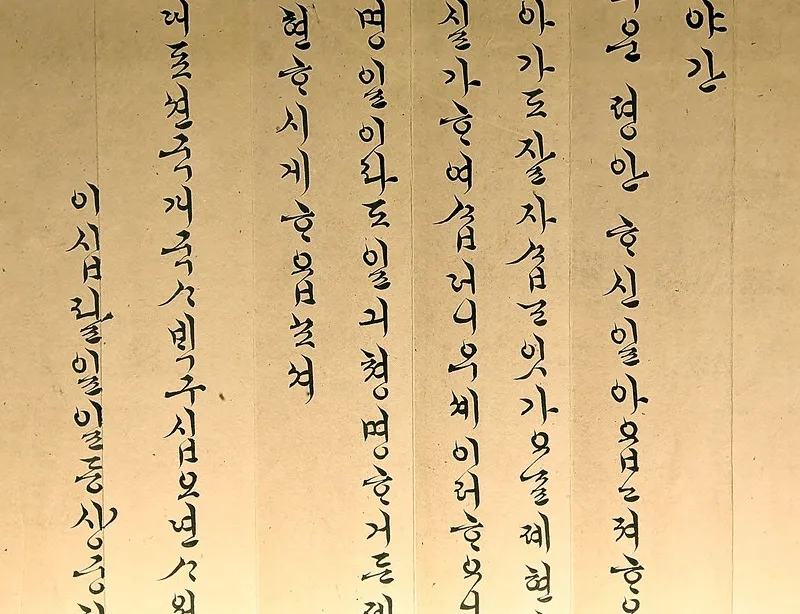 야간
운 평안 ᄒᆞ신 일 아옵고져 ᄒᆞ오
아가도 잘 자ᄉᆞᆸᄂᆞ잇가 오ᄂᆞᆯ 졔현
실가 ᄒᆞ여ᄉᆞᆸ더니 우셰 이러ᄒᆞ오니
명일이라도 일긔 쳥명 ᄒᆞ거든 졔
현 ᄒᆞ시게 ᄒᆞ옵쇼셔
대죠션국 개국 ᄉᆞᄇᆡᆨ구십오년 ᄉᆞ월
이십칠일 일등 상궁